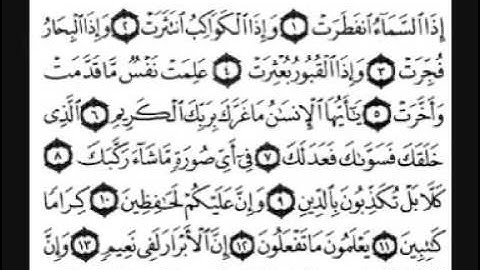 إِذَا ٱلسَّمَآءُ ٱنفَطَرَتْ ١ وَإِذَا ٱلْكَوَاكِبُ ٱنتَثَرَتْ ٢ وَإِذَا ٱلْبِحَارُ
فُجِّرَتْ ٣ وَإِذَا ٱلْقُبُورُ بُعْثِرَتْ ٤ عَلِمَتْ نَفْسٌ مَّا قَدَّمَتْ
وَأَخَّرَتْ ٥ يَٰٓأَيُّهَا ٱلْإِنسَٰنُ مَا غَرَّكَ بِرَبِّكَ ٱلْكَرِيمِ ٦ ٱلَّذِى
خَلَقَكَ فَسَوَّىٰكَ فَعَدَلَكَ ٧ فِىٓ أَىِّ صُورَةٍ مَّا شَآءَ رَكَّبَكَ ٨
كَلَّا بَلْ تُكَذِّبُونَ بِٱلدِّينِ ٩ وَإِنَّ عَلَيْكُمْ لَحَٰفِظِينَ ١٠ كِرَامًا
كَٰتِبِينَ ١١ يَعْلَمُونَ مَا تَفْعَلُونَ ١٢ إِنَّ ٱلْأَبْرَارَ لَفِى نَعِيمٍ ١٣ وَإِنَّ